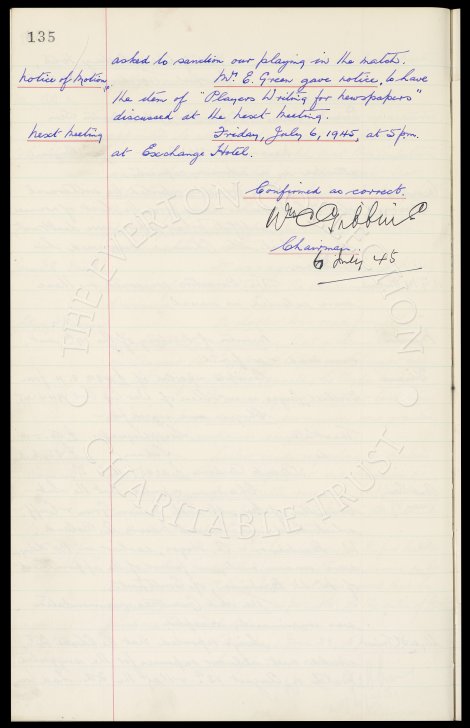 135
asked to sanction our playing in the match.
Notice of Motion. Mr. E. Green gave notice, to have
the item of "Players Writing for newspapers"
discussed at the next meeting.
Next Meeting Friday, July 6, 1945, at 5pm.
at Exchange Hotel.
Confirmed as correct.
Wm C Gibbins
Chairman.
6 July 45
THE EVERTON COLLECTION
CHARITABLE TRUST